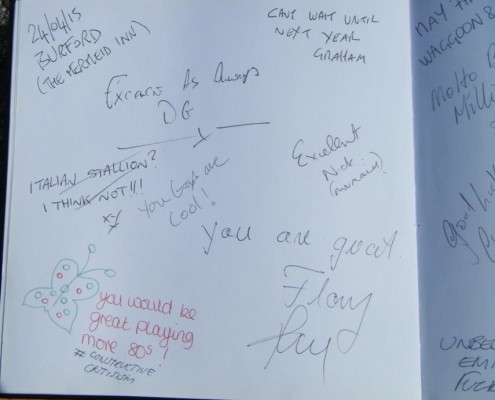 24/04/15
BURFORD
(THE MERMEID INN)
CANT WAIT UNTIL
NEXT YEAR
GRAHAM
As Always
DG
ITALIAN STALLION?
I THINK NOT!!!
X-Y
You guys are
cool!
Excellent
Nick
(mermaid)
you are great
you would be
great playing
more 80s!
# CONSTRUCTIVE
CRITISISM
MAY
WAGGON &
Motto
Milli
Good
UNBE
EM